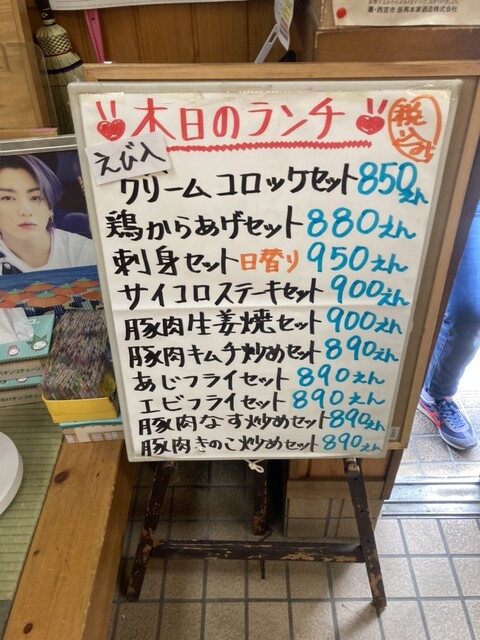 蔵・西宮市 辰馬本家酒造株式会社
本日のランチ
税込み
えび入
クリームコロッケセット 850えん
鶏からあげセット 880えん
刺身セット 日替り 950えん
サイコロステーキセット 900えん
豚肉生姜焼セット 900えん
豚肉キムチ炒めセット 890えん
あじフライセット 890えん
エビフライセット 890えん
豚肉なす炒めセット 890えん
豚肉きのこ炒めセット 890えん